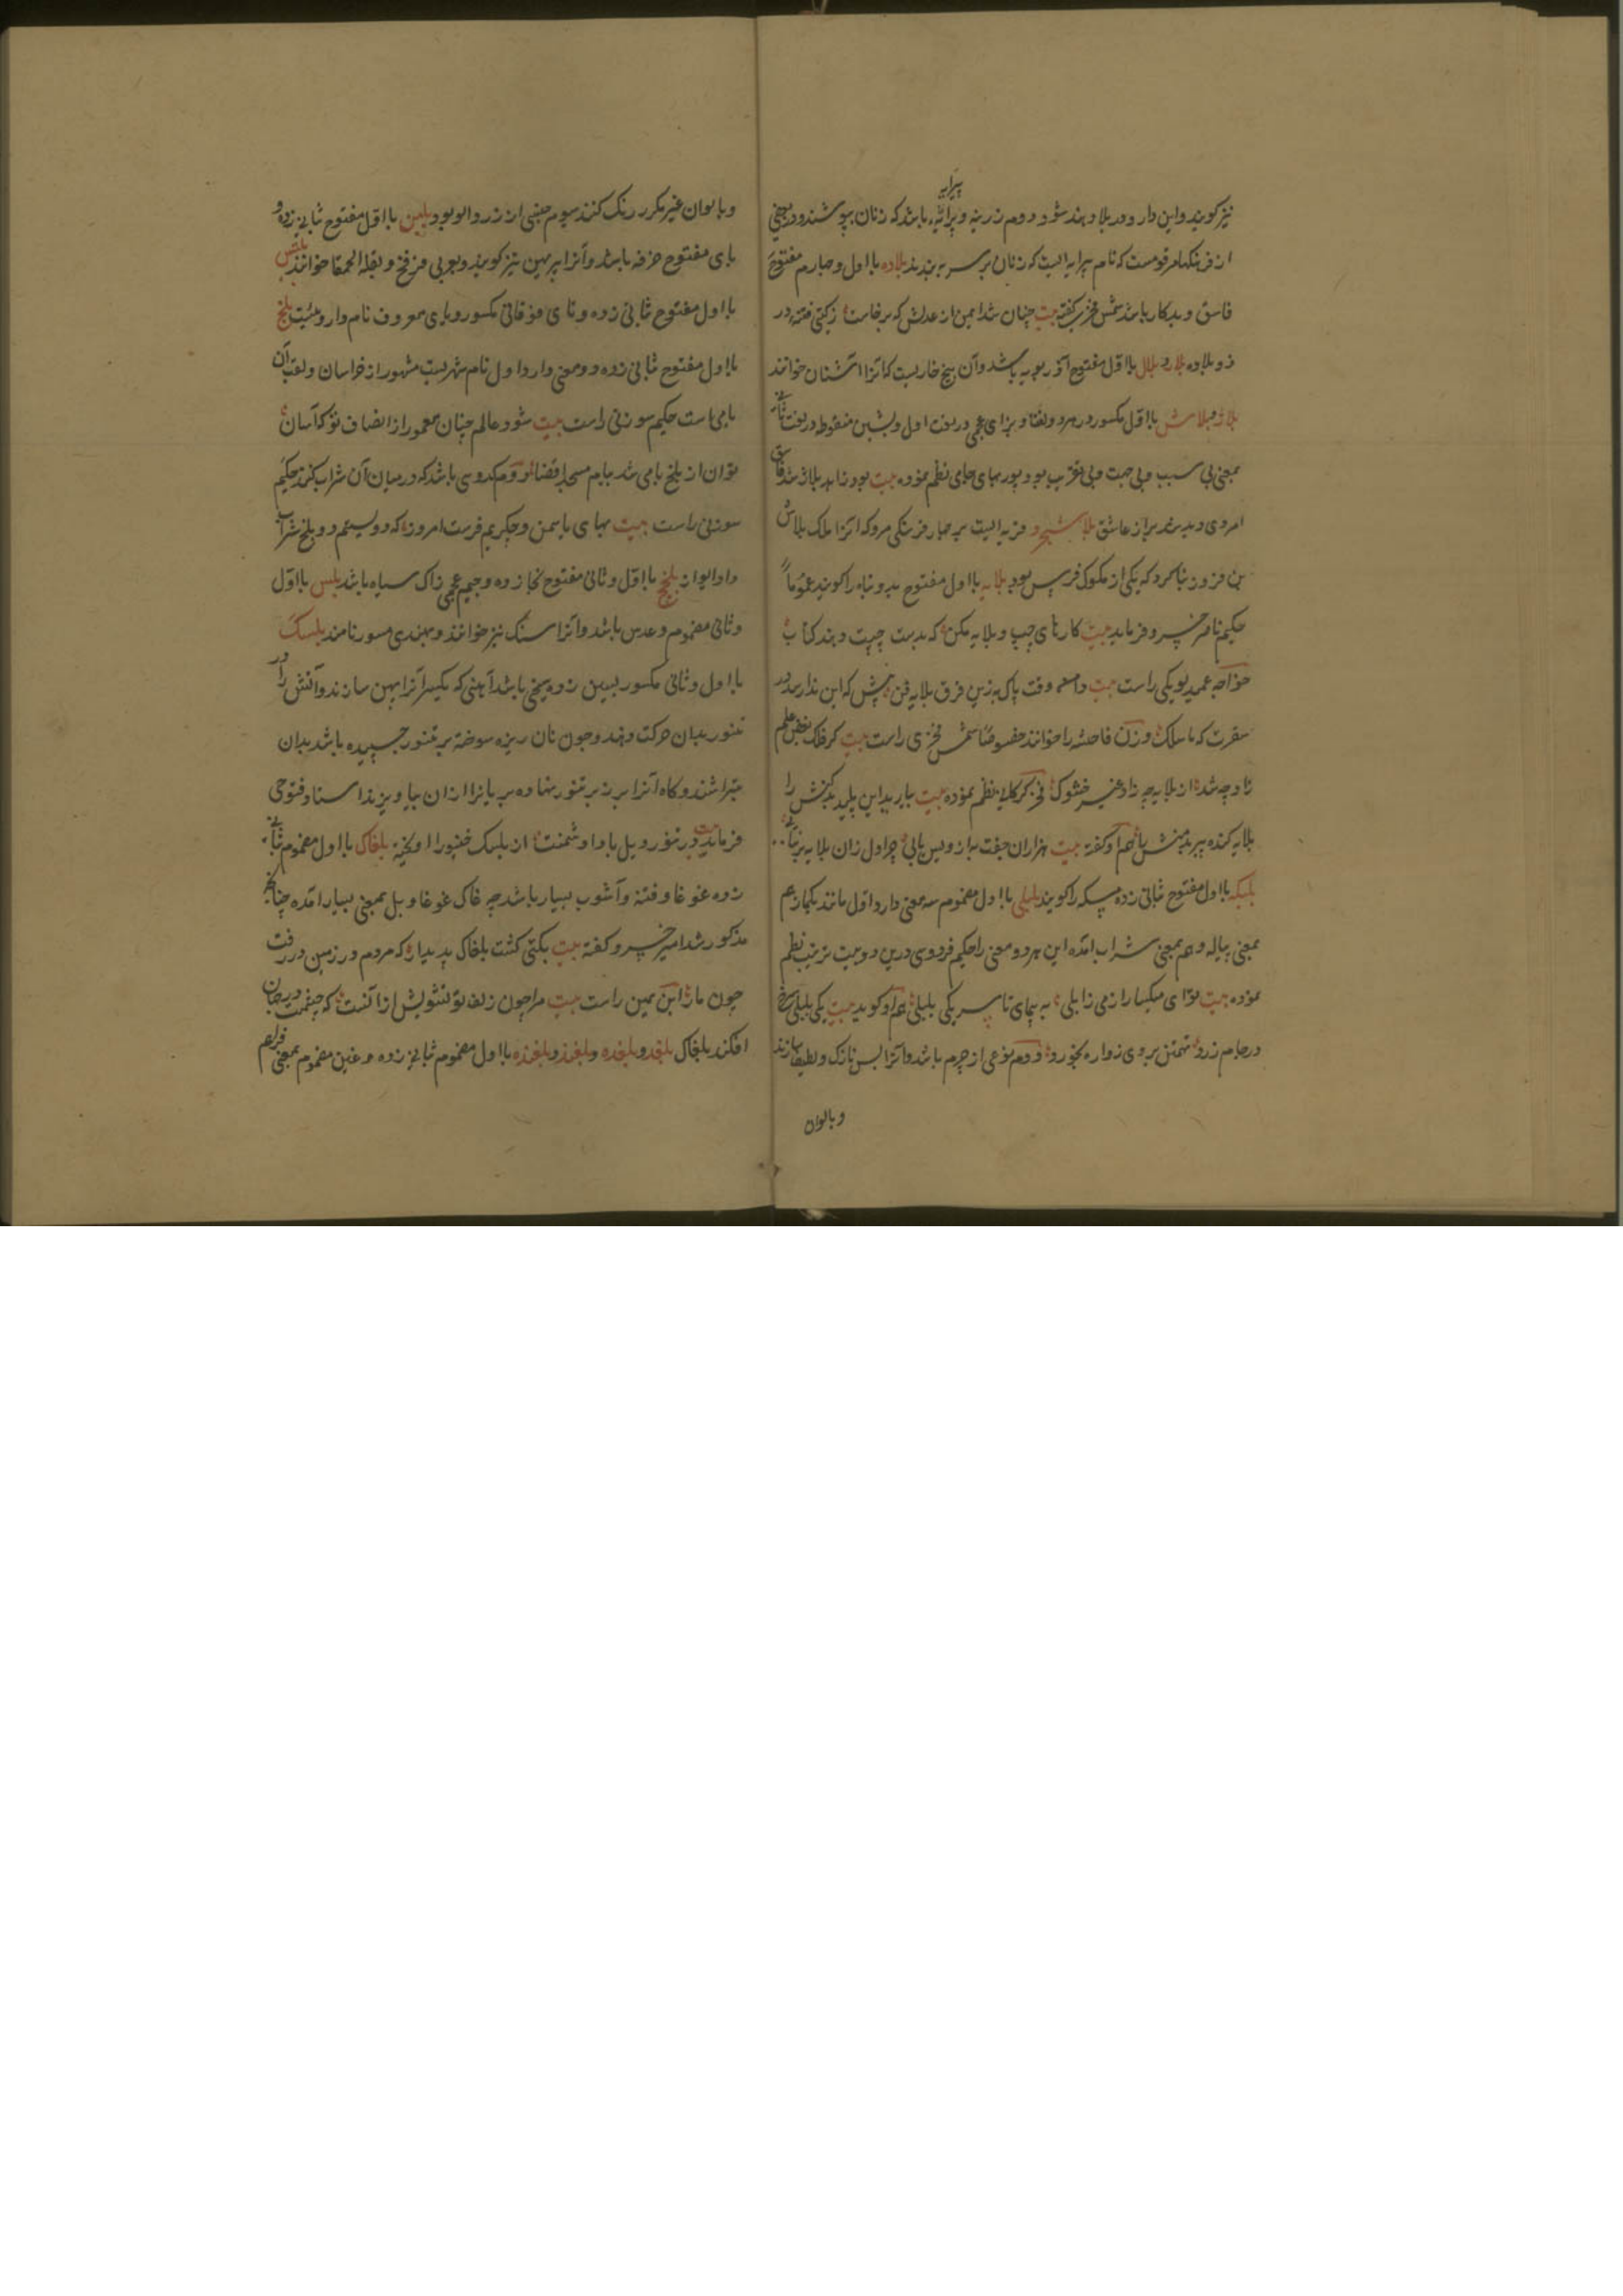 پیرایه
نیز کویند و این دار و در بلاد هند شود دوم زرینه و پیرایه باشد که زنان بپوشند و در بعضی
از فرهنکها مرقومست که نام پیرایه ایست که زنان بر سر بربندند بلاده با اول و چهارم مفتوح
فاسق و بدکار باشد شمس فخری کفته بیت چنان شد ایمن از عدلش که برخاست ز کیتی فتنه و
دزد و بلاده بلاد و بلال با اول مفتوح آذربویه باشد و آن بیخ خاریست که آنرا اشنان خوانند
بلاژ و بلاش با اول مکسور در هر دو لغت و بزای عجمی در لغت اول و بشین منقوط در لغت ثانی
بمعنی بی سبب و بی جهت و بی تقریب بود پور بهای جامی نظم نموده بیت بود زاهد بلاژ شد فاسق
امردی دید شد بران عاشق بلاشجرد قریه ایست بر چهار فرسنکی مرو که آنرا ملک بلاش
بن فیروز بنا کرد که یکی از ملوک فرس بود بلایه با اول مفتوح بد و تباه را کویند عموماً
حکیم ناصر خسرو فرماید بیت کارهای چپ و بلایه مکن که بدست چپت دهند کتاب
خواجه عمید لویکی راست بیت
سقرت که ما سلک و زن فاحشه را خوانند خصوصا شمس فخری راست بیت کر فلک بغض
زاد چه شد از بلایه چه زاد غیر خشوک فخر کرکانی نظم نموده بیت بیارید این پلید بدکنش را
بلایه کنده پیر بدمنش را هم او کفته بیت هزاران جفت به از ویس یابی چرا دل زان بلایه برنتابی
بلبکه با اول مفتوح ثبانی زده مسکه را کویند بلبلی با اول مضموم سه معنی دارد اول مانند یکبار هم
بمعنی پیاله و هم بمعنی شراب آمده این هر دو معنی را حکیم فردوسی درین دو بیت ترتیب نظم
نموده بیت تو ای میکسار از می زابلی به پیمای تا سر یکی بلبلی هم او کوید بیت یکی بلبلی سرخ
در جام زرد تهمتن بروی زواره بخورد دوم نوعی از چرم باشد و آنرا بس نازک و لطیف سازند
و بالوان
و بالوان غیر مکرر رنک کنند سیوم جنسی از زردالو بود بلبن با اول مفتوح ثبانی زده و
بای مفتوح خرفه باشد و آنرا پرپهن نیز کویند و بعربی فرفخ و بقلة الحمقا خوانند بلتیس
با اول مفتوح ثبانی زده و تای فوقانی مکسور و یای معروف نام داروئیست بلخ
با اول مفتوح ثبانی زده دو معنی دارد اول نام شهریست مشهور از خراسان و لقب آن
بامی است حکیم سوزنی راست بیت شود عالم چنان معمور از انصاف تو کآسان
توان از بلخ بامی شد ببام مسجد اقصا دوم کدوی باشد که در میان آن شراب کنند حکیم
سوزنی راست بیت بهای یاسمن و چکریم فرست امروز که دوستیم دو بلخ شراب
داد ایواز بلخج با اول و ثانی مفتوح بخا زده و جیم عجمی زاک سیاه باشد بلس با اول
و ثانی مضموم و عدس باشد و آنرا سنک نیز خوانند و بهندی مسور نامند بلسک
با اول و ثانی مکسور بسین زده سیخی باشد آهنی که یکسر آنرا پهن سازند و آتش را در
تنور بدان حرکت دهند و چون نان ریزه سوخته بر تنور چسپیده باشد بدان
بتراشند و کاه آنرا بر سر تنور نهاده بریانرا ازان بیاویزند استاد فتوحی
فرماید بیت در تنور ویل بادا دشمنت از بلسک خنپور اویخته بلغاک با اول مضموم ثبانی
زده غوغا و فتنه و آشوب بسیار باشد چه غاک غوغا و بل بمعنی بسیار آمده چنانچه
مذکور شد امیر خسرو کفته بیت بکیتی کشت بلغاک پدیدار که مردم در زمین در رفت
چون مار ابن یمین راست بیت مرا چون زلف تو تشویش از آنست که چشمت در جهان
افکند بلغاک بلغد و بلغده و بلغند و بلغنده با اول مضموم ثبانی زده و غین مضموم بمعنی فراهم